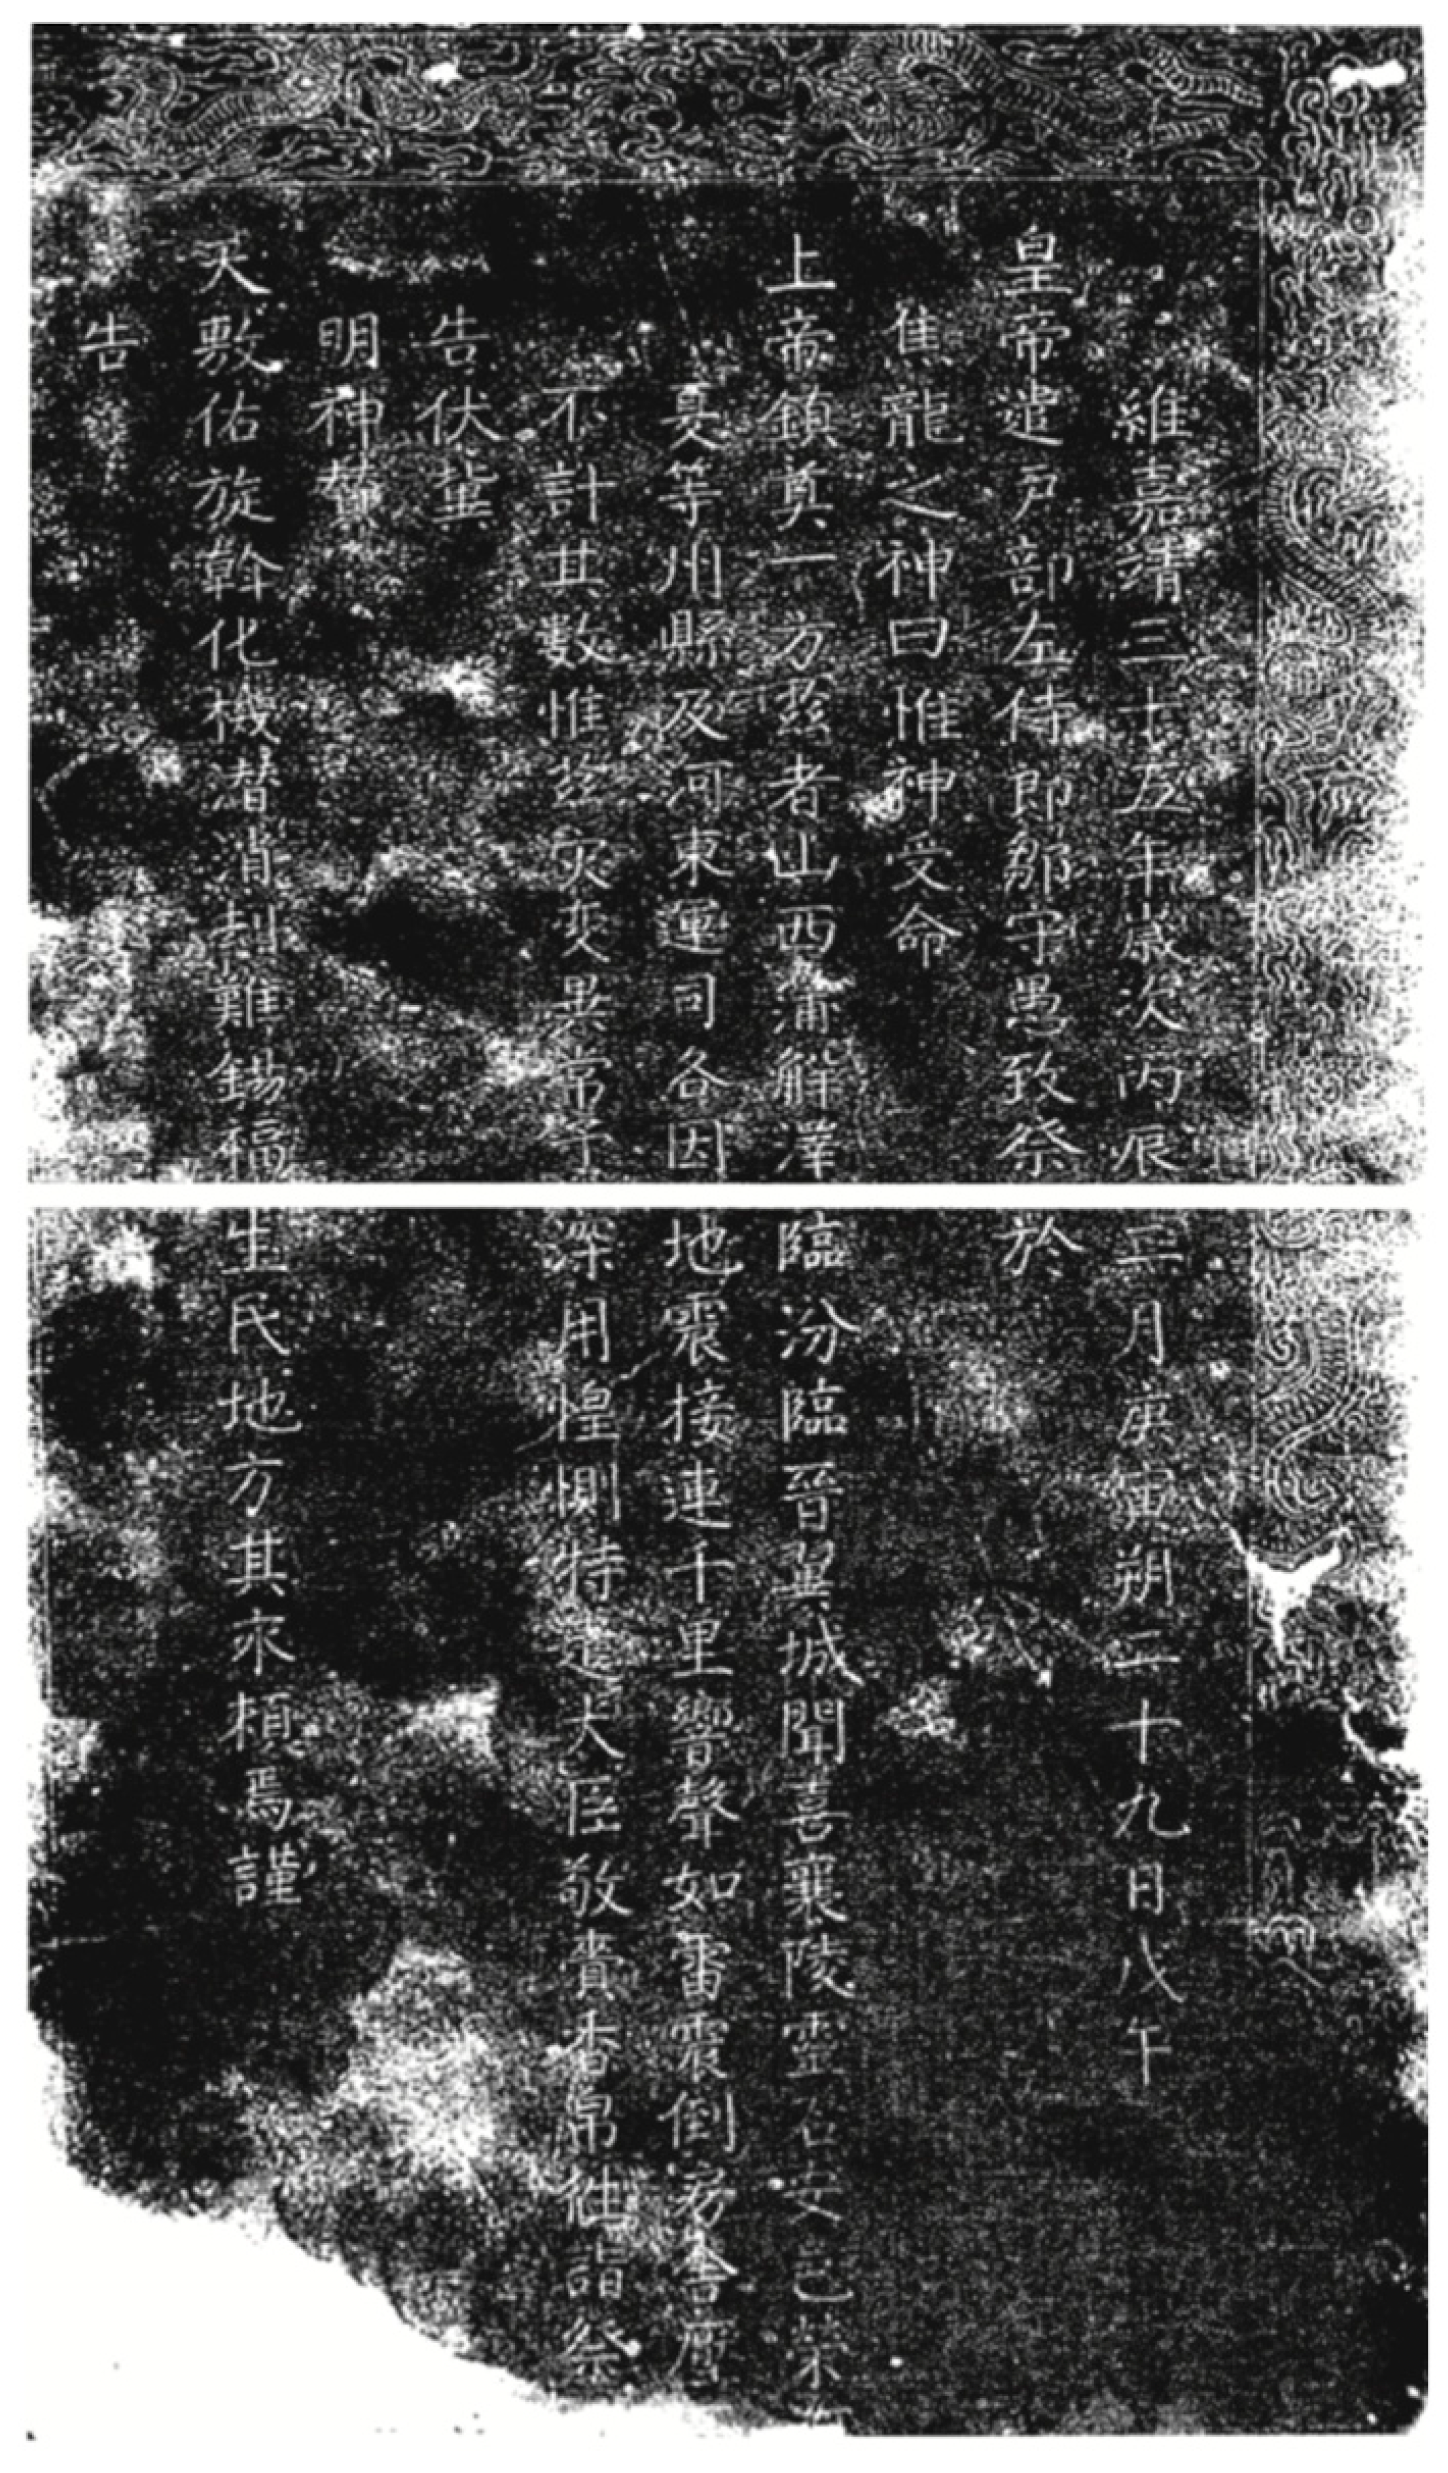 維嘉靖三十五年歲次丙辰二月庚寅朔二十九日戊午
皇帝遣戶部左侍郎鄒守愚致祭於
隹龍之神曰惟神受命
上帝鎮奠一方兹者山西蒲解澤臨汾臨晉翼城聞喜襄陵靈石安邑榮
夏等州縣及河東運司各因地震接連千里響聲如雷震倒房舍
不計其数惟兹灾变異常予深用惶惻特遣大臣敬賫香帛徃詣祭
告伏冀
明神
天敷佑旋斡化機潜消刦難錫福生民地方其永頼焉謹
告